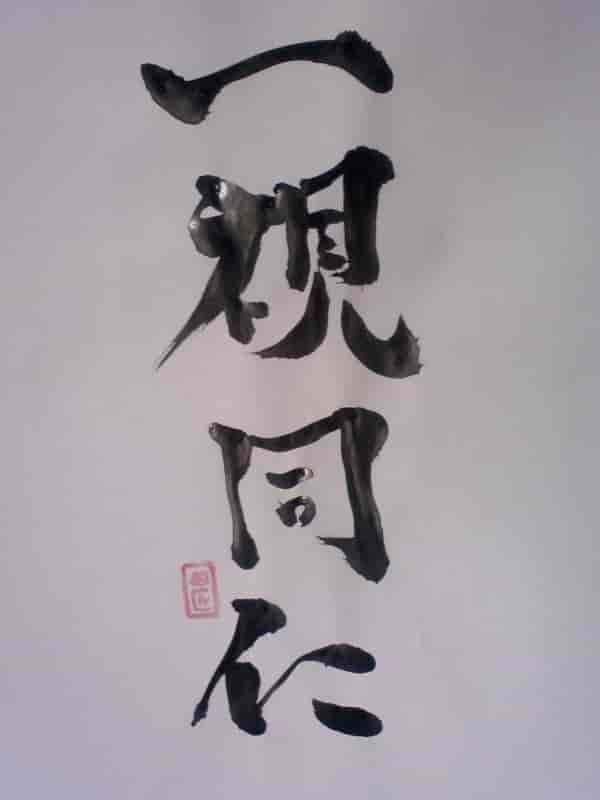 一視同仁